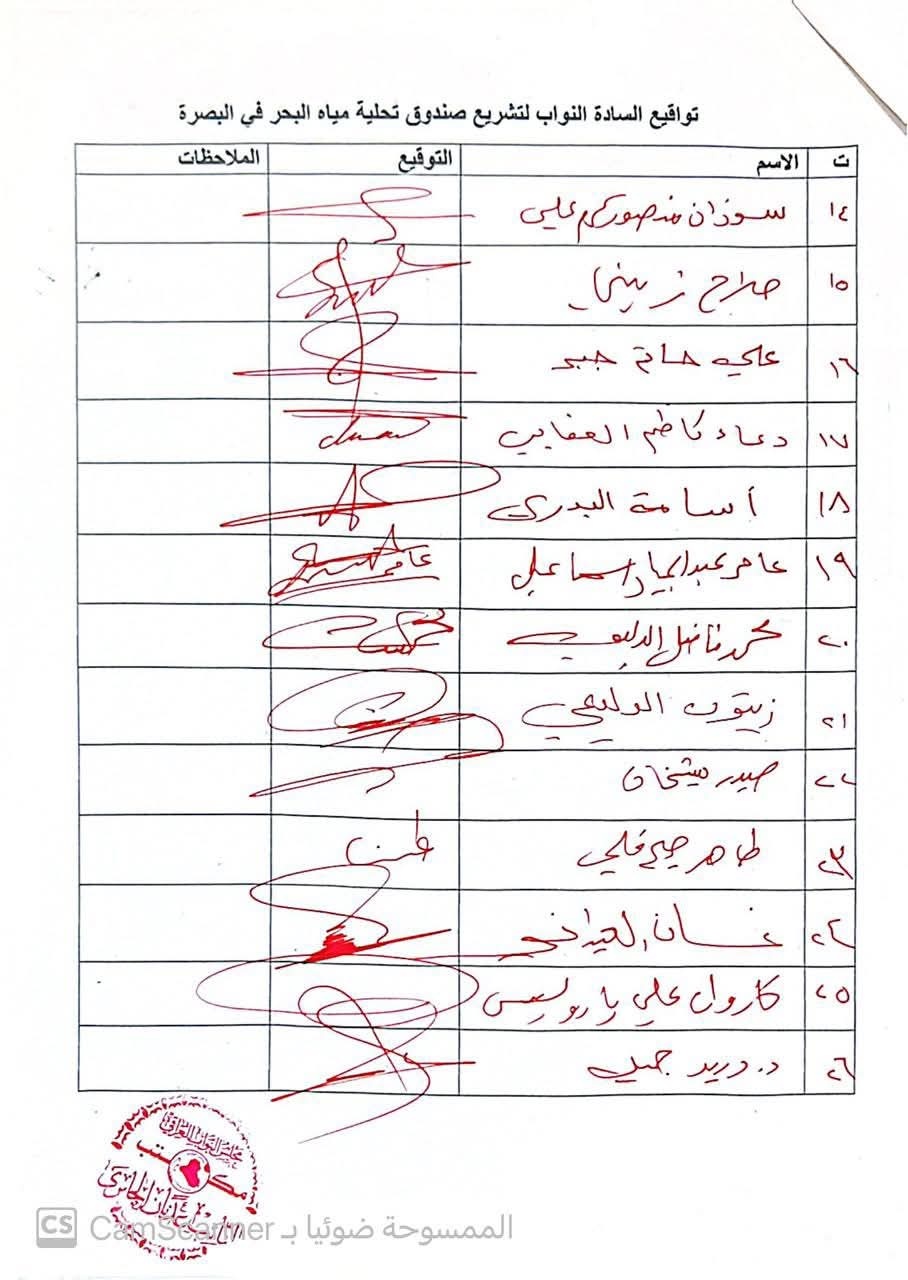 تواقيع السادة النواب لتشريع صندوق تحلية مياه البحر في البصرة
ت الاسم التوقيع الملاحظات
١٤ سوزان منصور كرم علي
١٥ صلاح زيني
١٦ علي حاتم جبر
١٧ دعاء كاظم
١٨ أسامة البدري
١٩ عامر عبد الجبار اسماعيل عامر
٢٠ محمد فاضل
٢١ زيتون الدليمي
٢٢ حيدر شيخان
٢٣ طاهر
٢٤ غسان العيداني
٢٥ كاروان علي يارويس
٢٦ د. دريد جميل
مجلس النواب العراقي
مكتب
النائب
CS CamScanner الممسوحة ضوئيا بـ